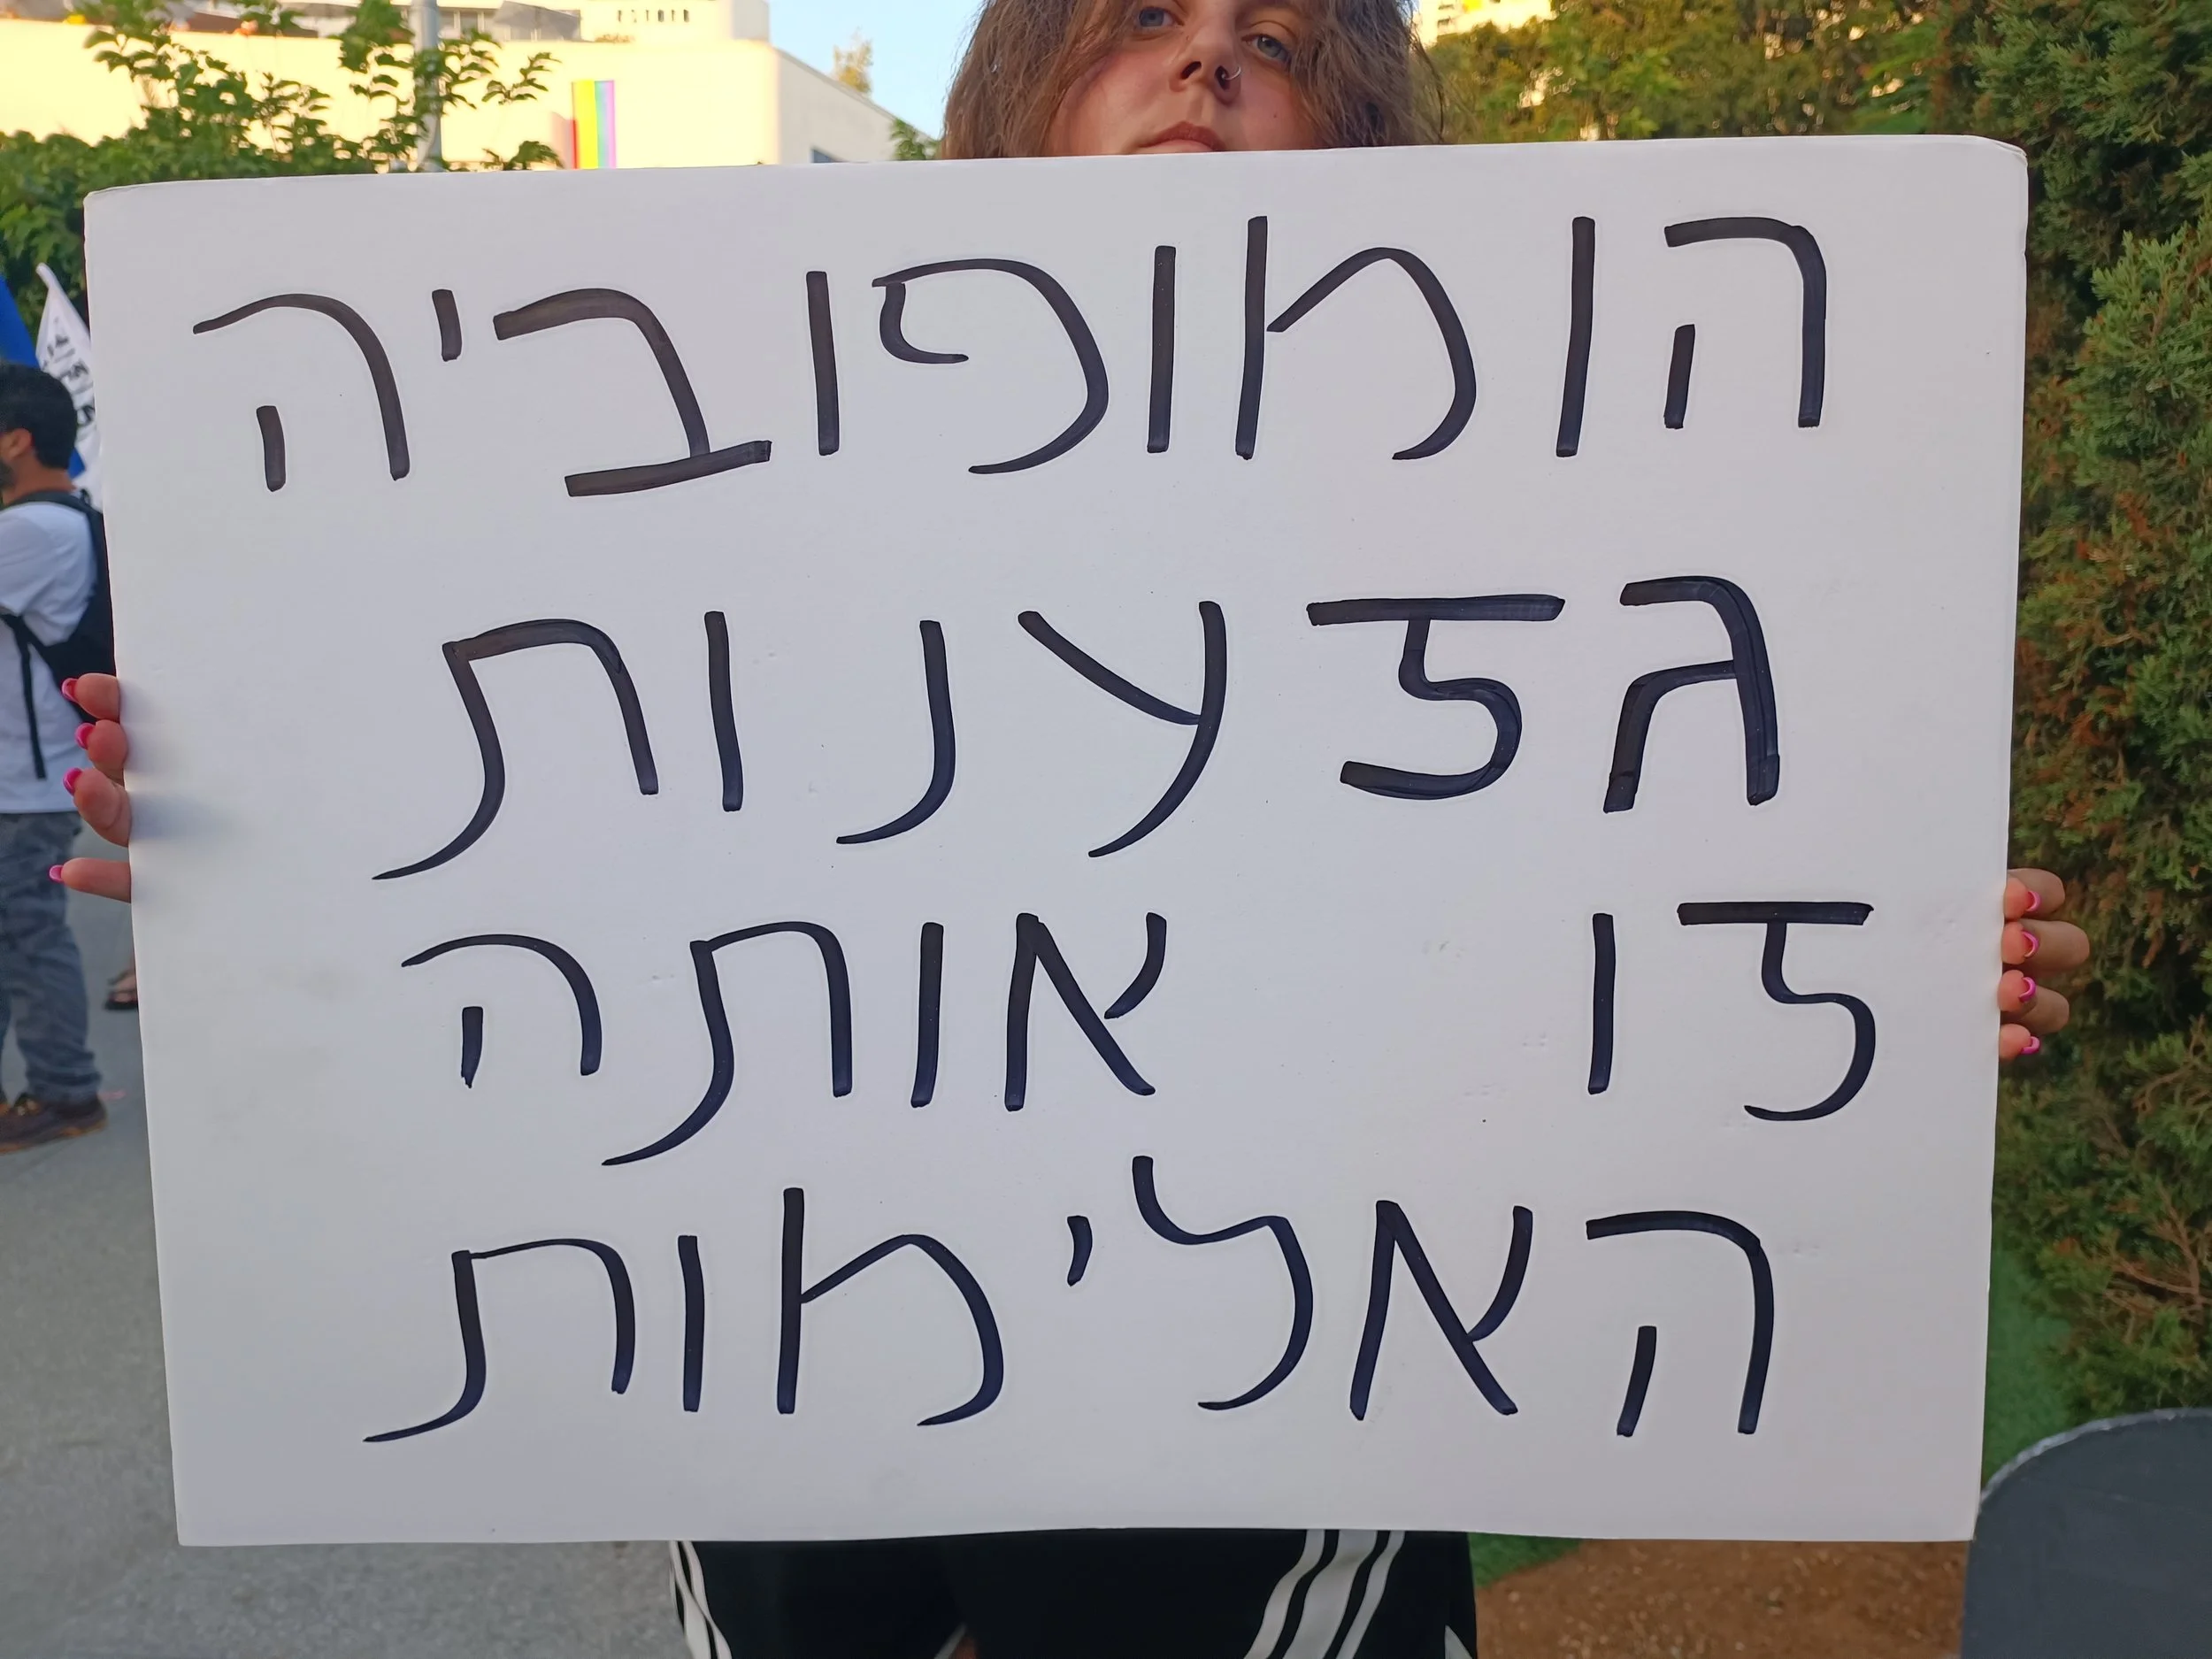 הומופוביה
גזענות
זו אותה
האלימות